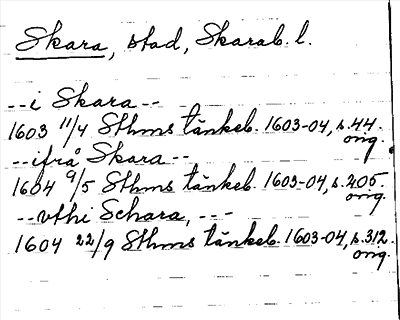 Skara, stad, Skarab. l.
--i Skara--
1603 11/4 Sthms tänkeb. 1603-04, s. 44.
orig.
--ifrå Skara--
1604 9/5 Sthms tänkeb. 1603-04, s. 205.
orig.
--vthi Schara, ---
1604 22/9 Sthms tänkeb. 1603-04, s. 312.
orig.